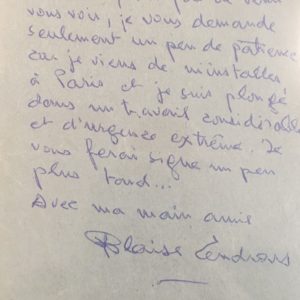 vous voir, je vous demande
seulement un peu de patience
car je viens de m'installer
à Paris et je suis plongé
dans un travail considérable
et d'urgence extrême. Je
vous ferai signe un peu
plus tard...
Avec ma main amie
Blaise Cendrars